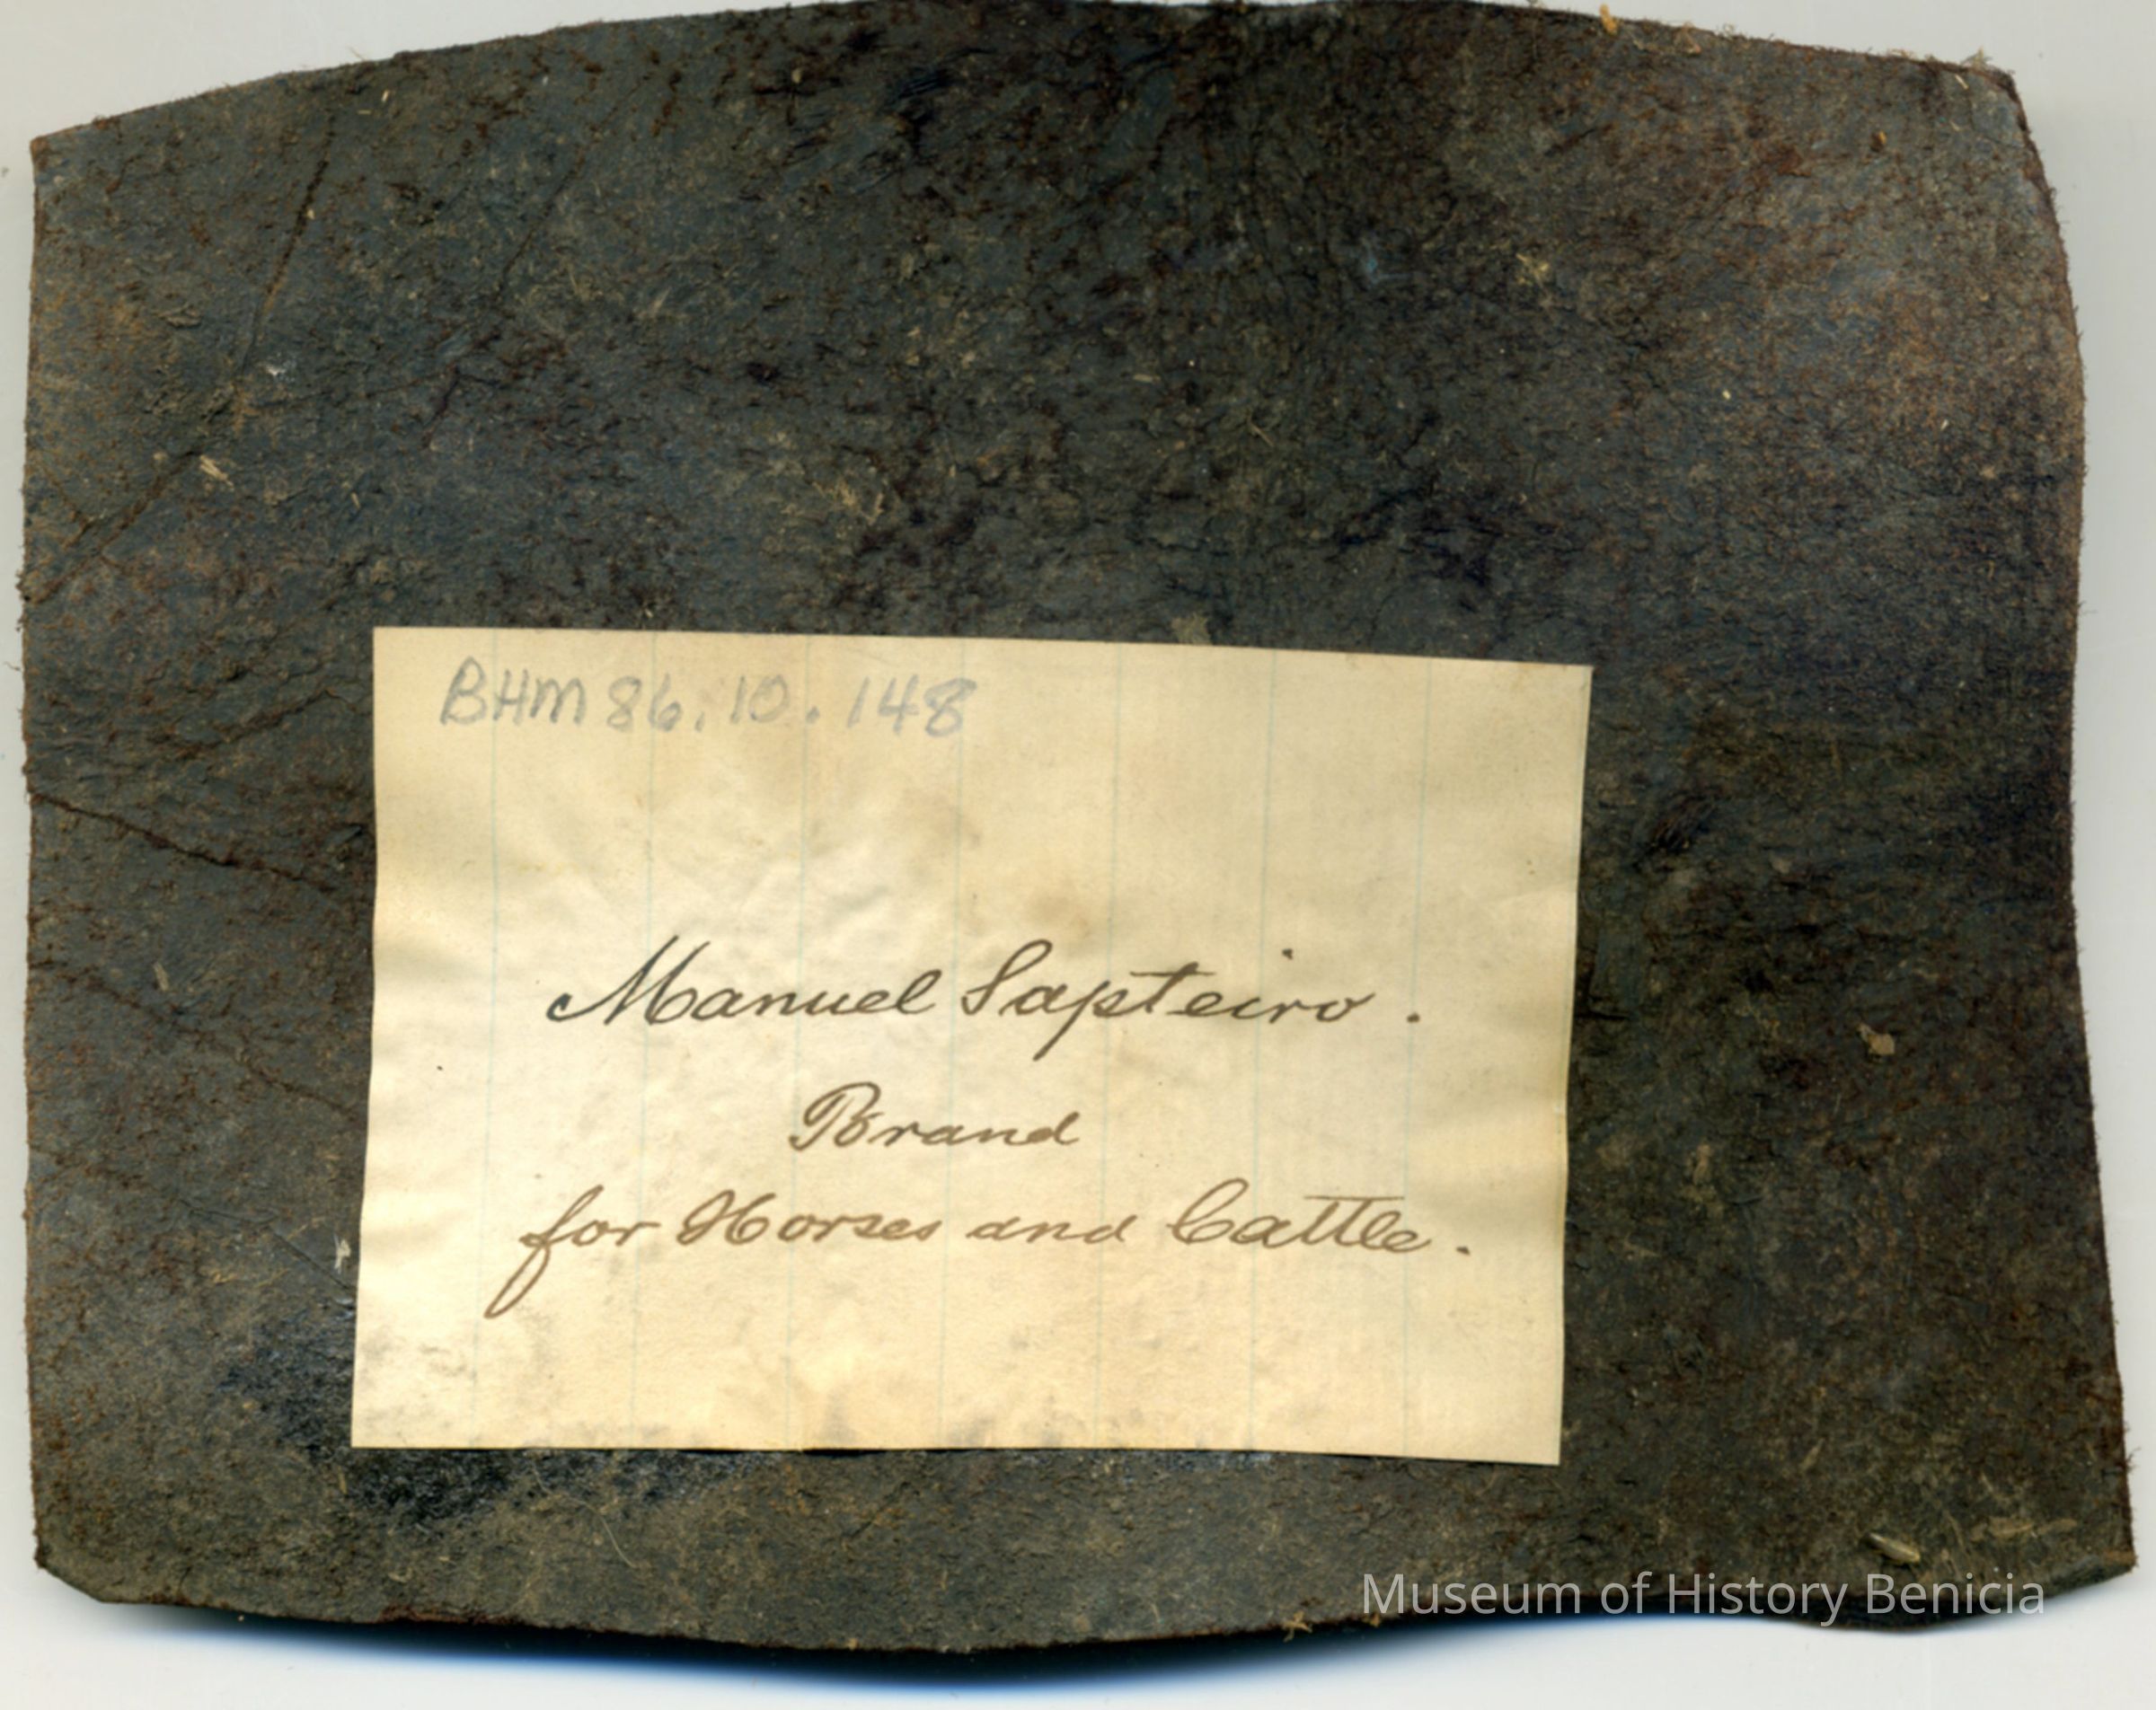 BHM 86.10.148
Manuel Sapteiro.
Brand
for Horses and Cattle.
Museum of History Benicia